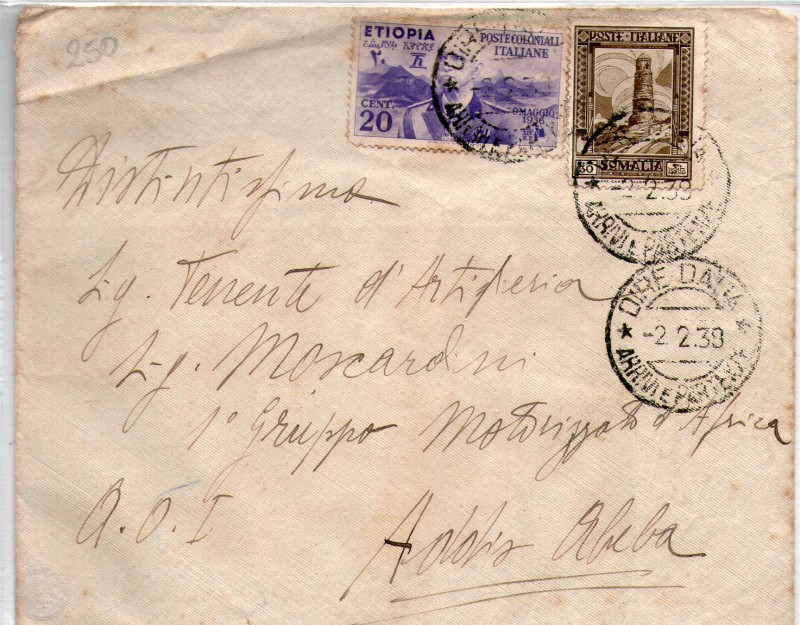 250
ETIOPIA
POSTE COLONIALI
ITALIANE
CENT.
20
MAGGIO
1936
POSTE ITALIANE
50
SOMALIA
-2.2.39
ARRIVI E PARTENZE
-2.2.39
ARRIVI E PARTENZE
DIRE DAUA
-2.2.39
ARRIVI E PARTENZE
Distintissimo
Sig. Tenente d'Artiglieria
Sig. Moscardini
1° Gruppo Motorizzato d'Africa
A.O.I
Addis Abeba